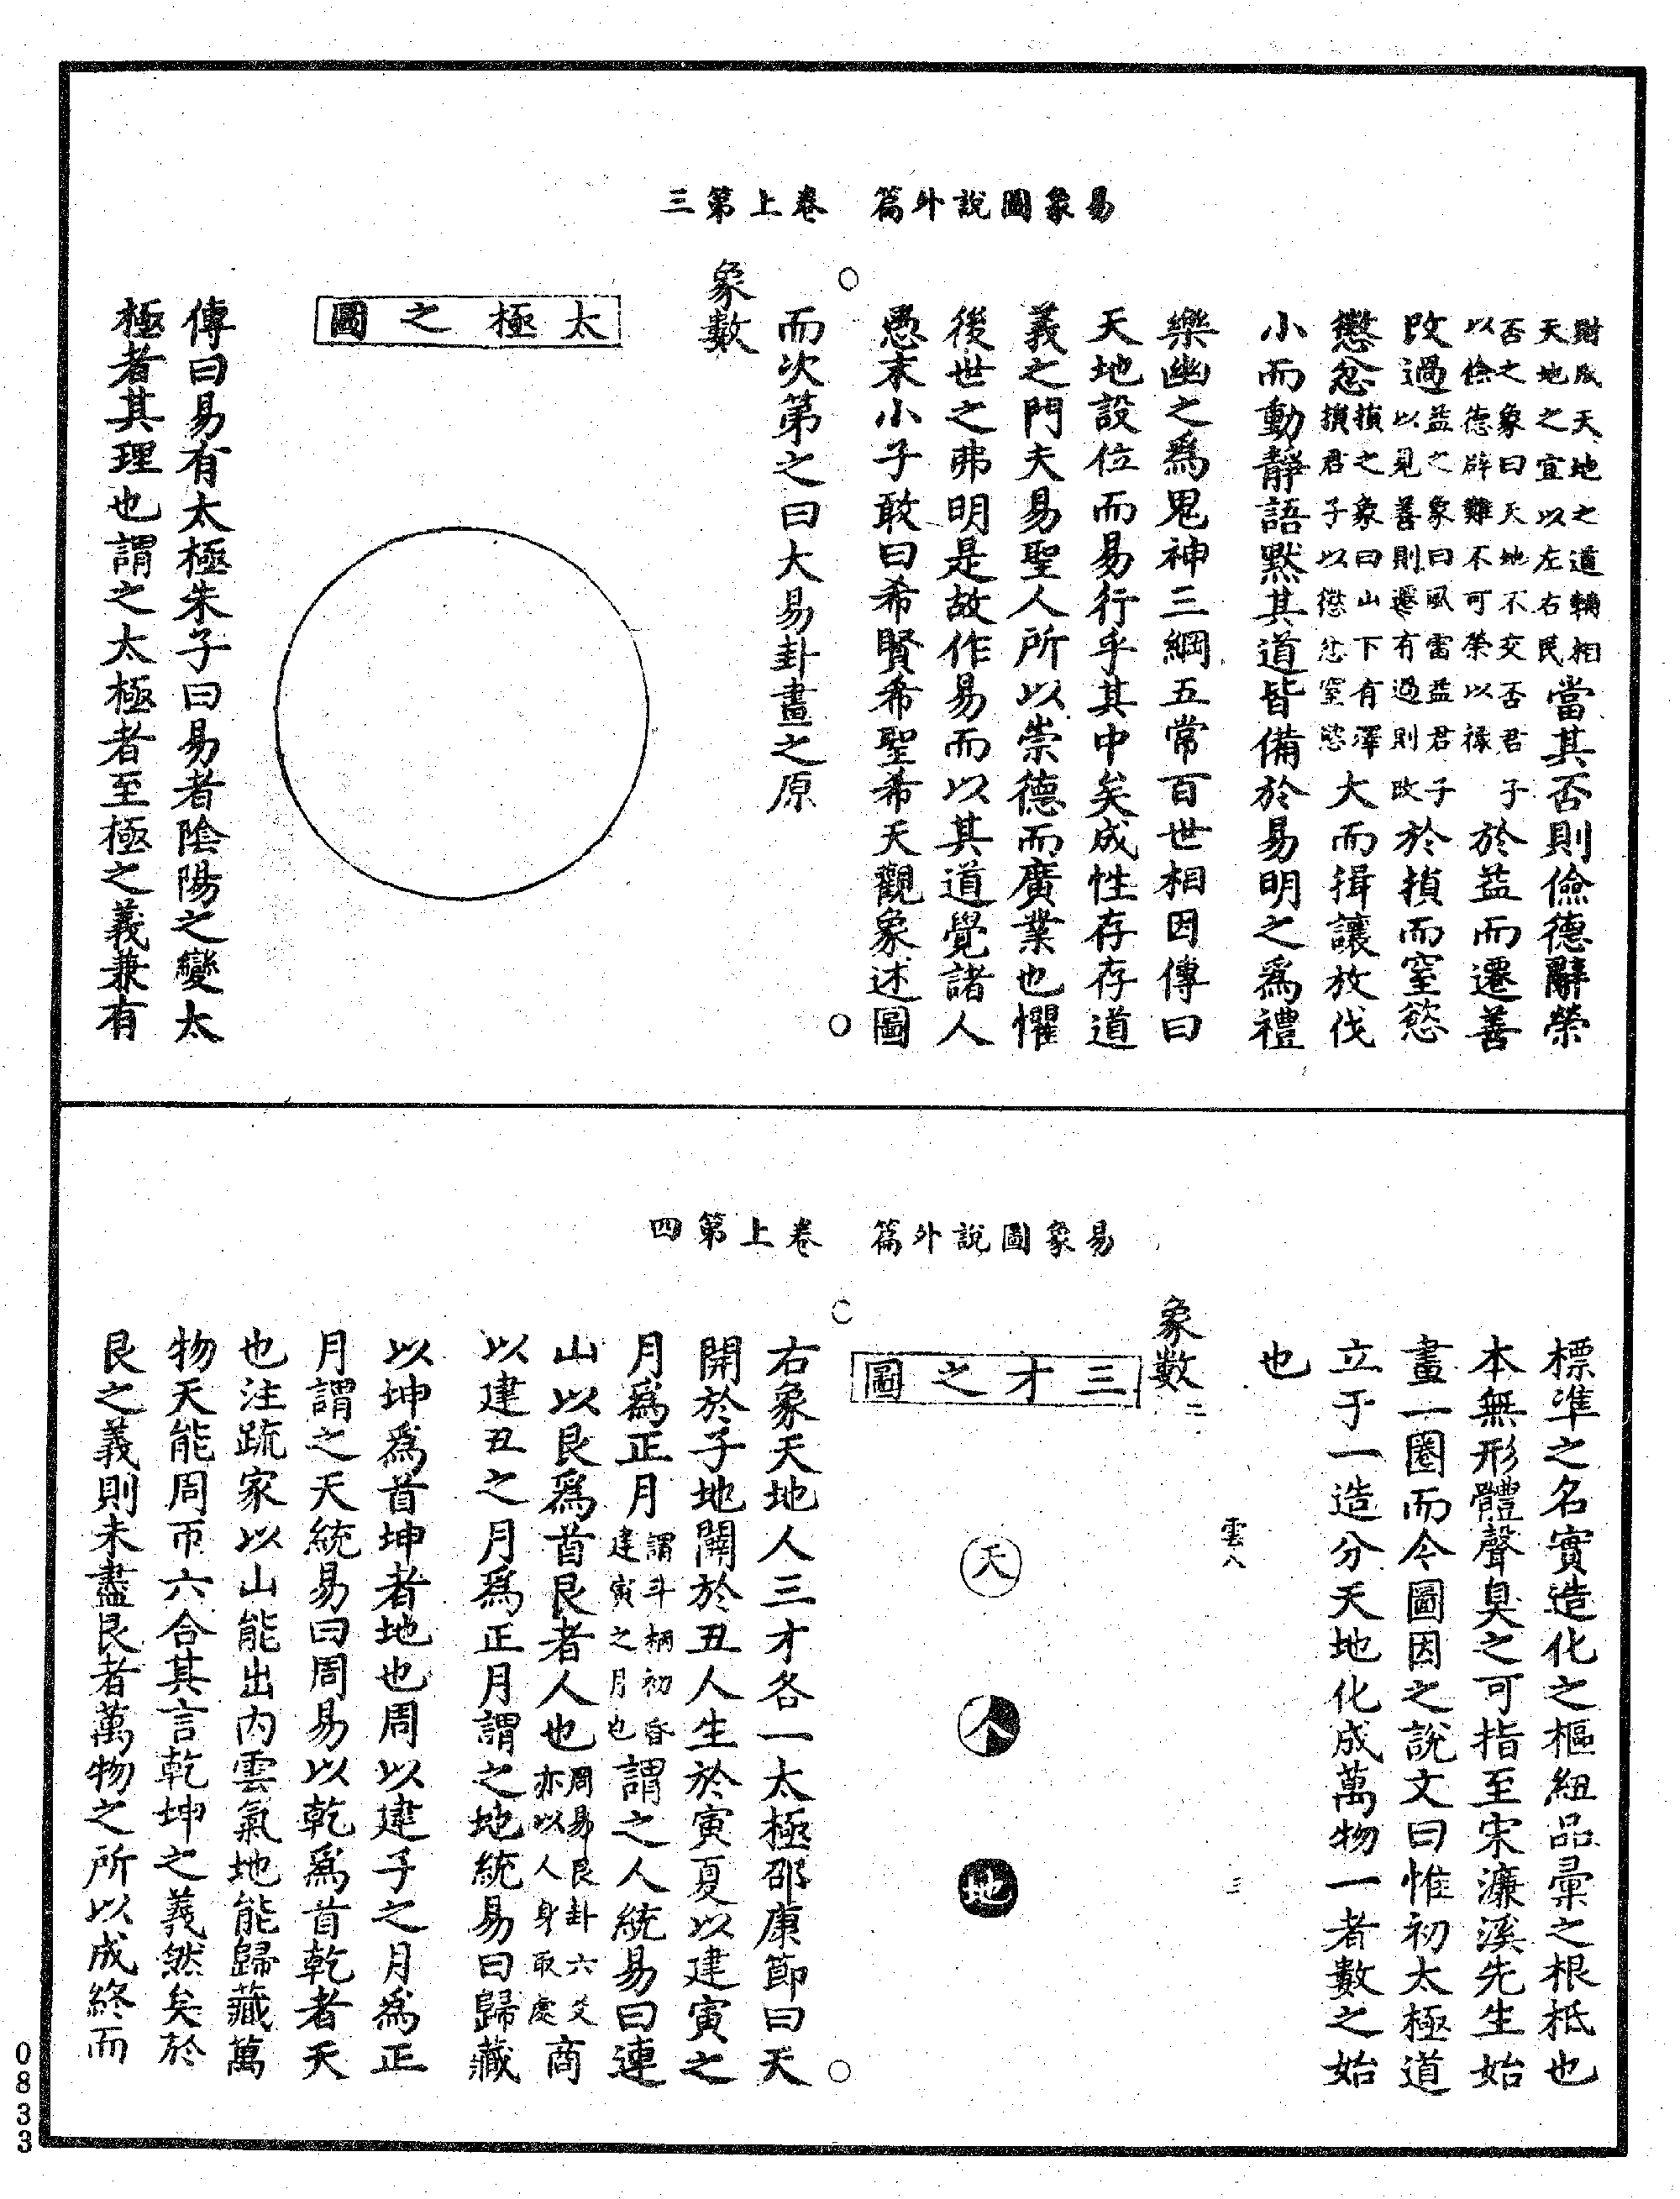 易象圖說外篇　卷上第三
財成天地之道輔相
天地之宜以左右民當其否則儉德辭榮
否之象曰天地不交否君子
以儉德辟難不可榮以祿於益而遷善
改過益之象曰風雷益君子
以見善則遷有過則改於損而窒慾
懲忿損之象曰山下有澤
損君子以懲忿窒慾大而揖讓放伐
小而動靜語默其道皆備於易明之爲禮
樂幽之爲鬼神三綱五常百世相因傳曰
天地設位而易行乎其中矣成性存存道
義之門夫易聖人所以崇德而廣業也懼
後世之弗明是故作易而以其道覺諸人
愚末小子敢曰希賢希聖希天觀象述圖
而次第之曰大易卦畫之原
象數
太極之圖
傳曰易有太極朱子曰易者陰陽之變太
極者其理也謂之太極者至極之義兼有
易象圖說外篇　卷上第四
標準之名實造化之樞紐品彙之根柢也
本無形體聲臭之可指至宋濂溪先生始
畫一圈而今圖因之說文曰惟初太極道
立于一造分天地化成萬物一者數之始
也
雲八
三
象數二
三才之圖
天
人
地
右象天地人三才各一太極邵康節曰天
開於子地闢於丑人生於寅夏以建寅之
月爲正月謂斗柄初昏
建寅之月也謂之人統易曰連
山以艮爲首艮者人也周易艮卦六爻
亦以人身取處商
以建丑之月爲正月謂之地統易曰歸藏
以坤爲首坤者地也周以建子之月爲正
月謂之天統易曰周易以乾爲首乾者天
也注䟽家以山能出內雲氣地能歸藏萬
物天能周帀六合其言乾坤之義然矣於
艮之義則未盡艮者萬物之所以成終而
0833